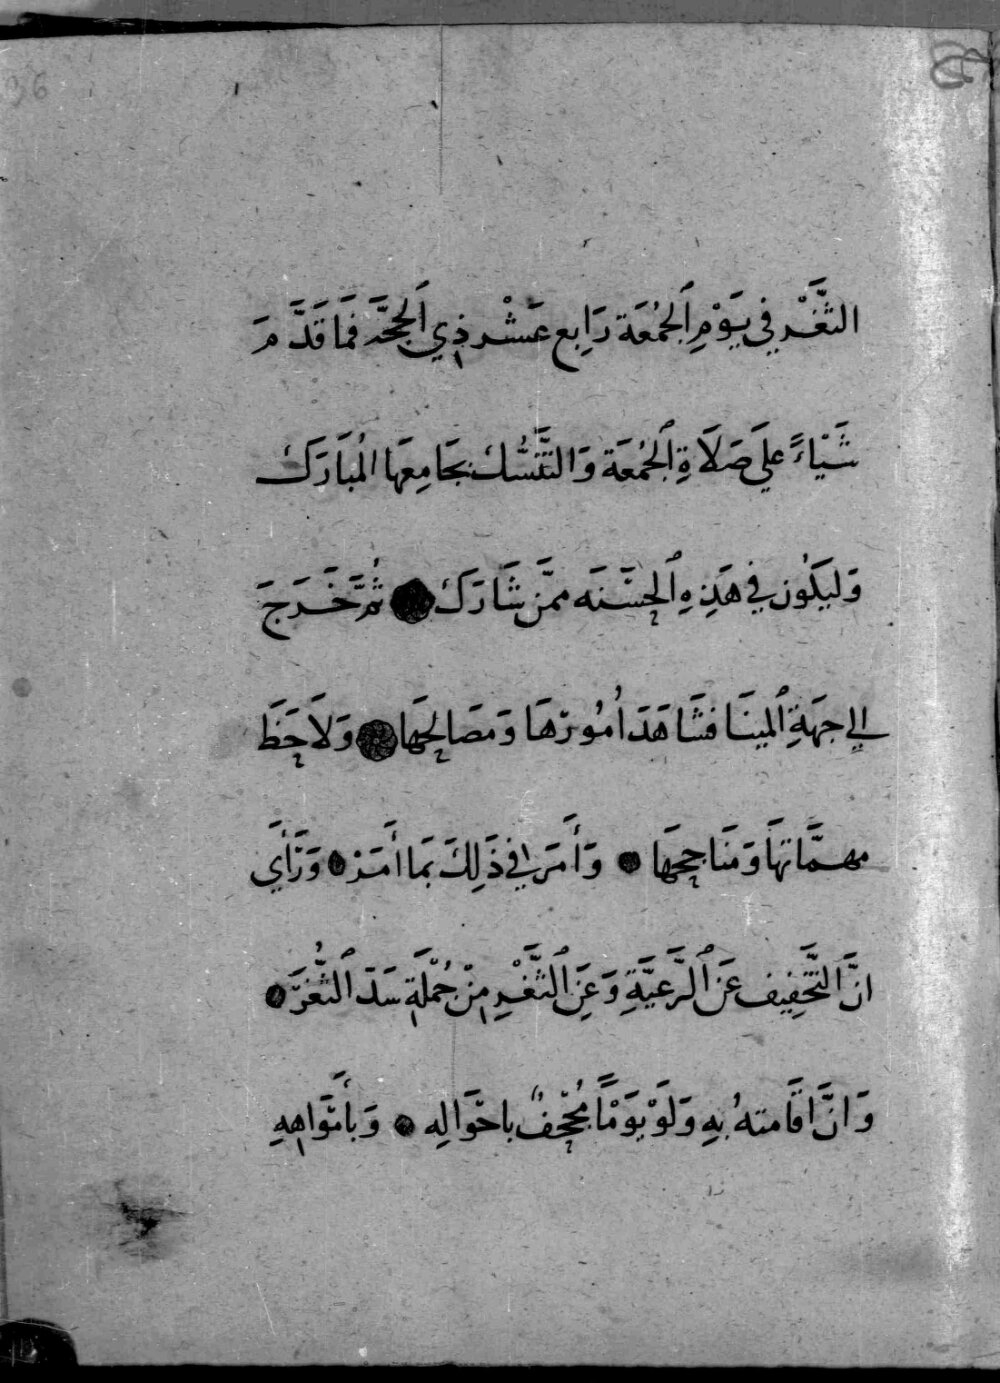 الثَّغْر في يَوْمِ ٱلجُمُعَة رَابِع عَشْر ذِي اَلحِجَّة فَمَا قَدَّمَ
شَيْاءً علَي صَلَاةِ ٱلجُمُعَة وَالتَّنَسُّك بجَامِعهَا المُبَارَك
وَليَكُون في هَذِهِ ٱلحِسَنَه ممَّن شَارَك ثُمَّ خَرَجَ
الي جِهَةِ ٱلمِينَا فشَاهَدَ اُمُورهَا وَمصَالِحَهَا وَلَاحَظَ
مهمَّاتهَا وَمَنَاجِحِهَا وَأَمَر في ذَلِكَ بمَا أمَر وَرَأَي
انَّ اَلتَّخْفِيف عَن ٱلرَّعِيَّةِ وَعَنِ ٱلثَّغْرِ مِنْ جُمْلَةِ سَدّ ٱلثُّغَرَ
وَانَّ اقَامتهُ بِهِ وَلَوْ يَوْمًا مُجْحِفٌ باحْوَالِه وَبأَمْوَاهِهِ